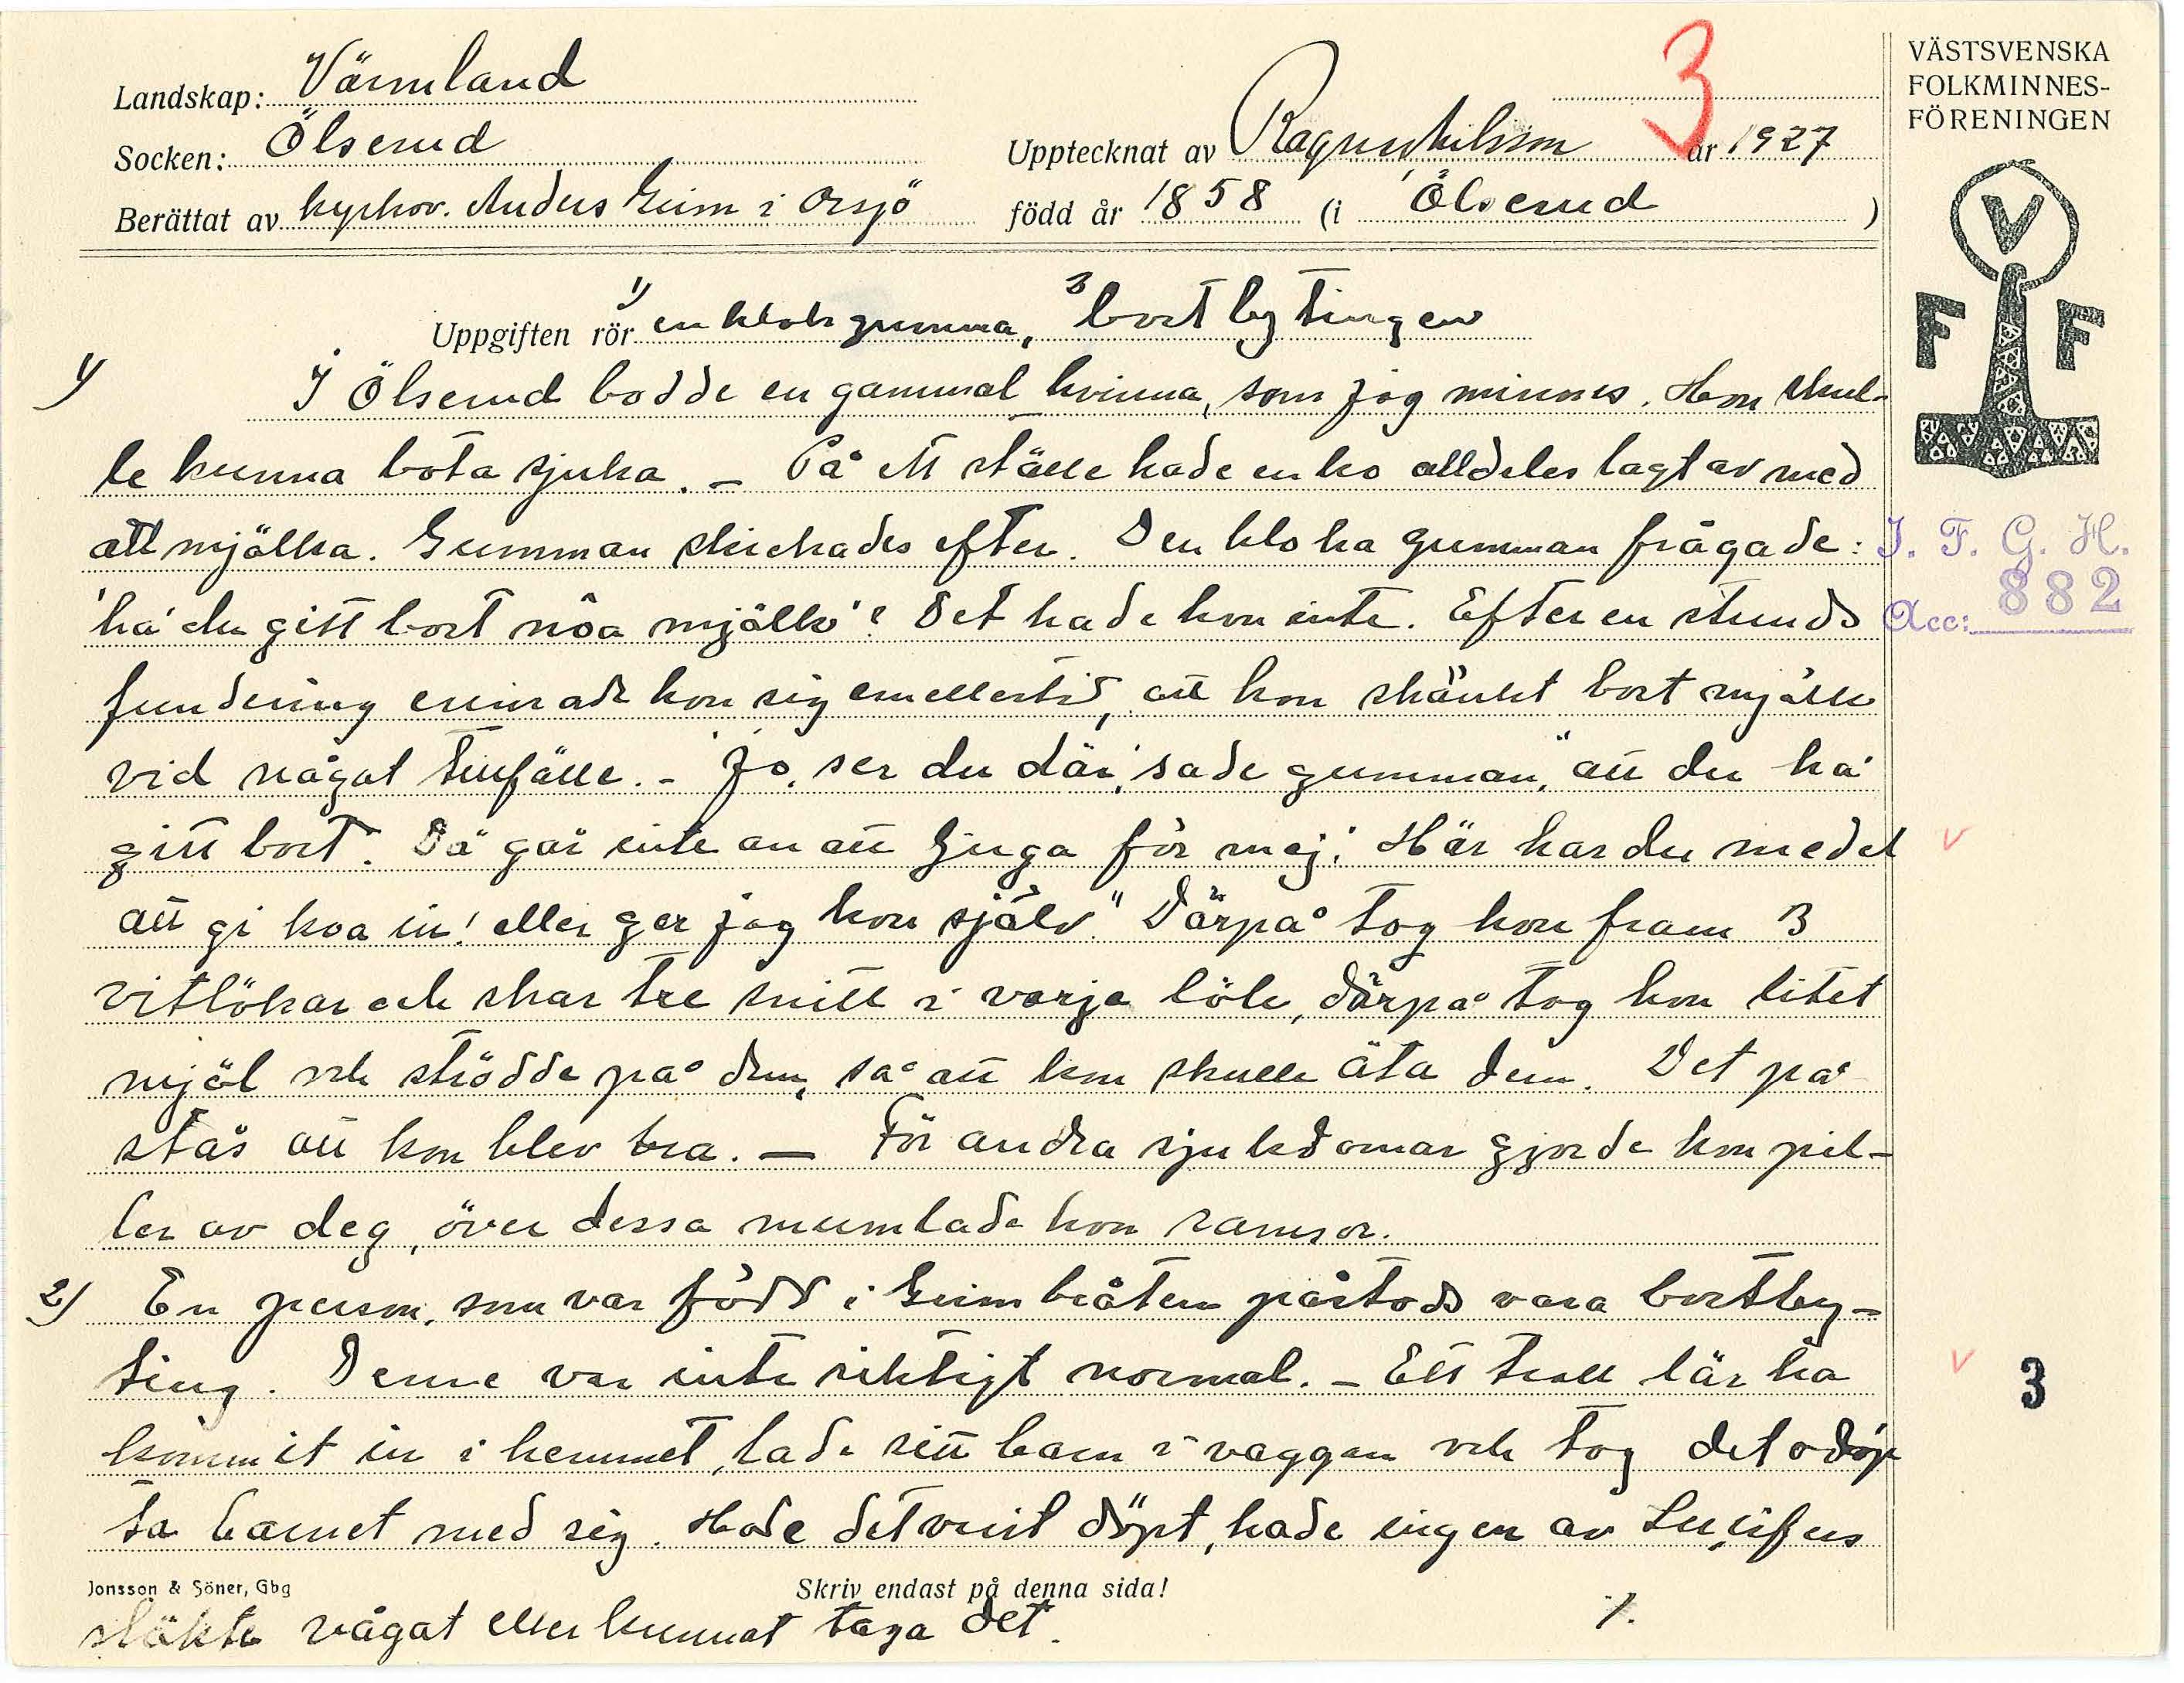 3
Landskap: Värmland
Socken: Ölserud
Upptecknat av Ragnar Nilsson år 1927
Berättat av kyrkov. Anders Grim i Orsjö född år 1858 (i Ölserud )
VÄSTSVENSKA
FOLKMINNES-
FÖRENINGEN
V
F F
I. F. G. H.
Acc: 882
Uppgiften rör 1) en klok gumma, 2 bortbytingen
1) I Ölserud bodde en gammal kvinna, som jag minnes. Hon skul-
le kunna bota sjuka. - På ett ställe hade en ko alldeles lagt av med
att mjölka. Gumman skickades efter. Den kloka gumman frågade:
'ha' du gitt bort nôa mjölk'? Det hade hon inte. Efter en stunds
fundering erinrade hon sig emellertid, att hon skänkt bort mjölk
vid något tillfälle. - "Jo, ser du där," sade gumman, "att du ha'
gitt bort. Dä går inte an att ljuga för mej! Här har du medel
att gi koa in! eller ger jag hon själv." Därpå tog hon fram 3
vitlökar och skar tre snitt i varje lök, därpå tog hon litet
mjöl och strödde på dem, så att kon skulle äta dem. Det på-
stås att kon blev bra. — För andra sjukdomar gjorde hon pil-
ler av deg, över dessa mumlade hon ramsor.
2) En person, som var född i Grimbråten påstods vara bortby-
ting. Denne var inte riktigt normal. - Ett troll lär ha
kommit in i hemmet, lade sitt barn i vaggan och tog det odöp
ta barnet med sig. Hade det varit döpt, hade ingen av Lucifers
släkte vågat eller kunnat taga det.
3
Jonsson & Söner, Gbg
Skriv endast på denna sida!
⁒